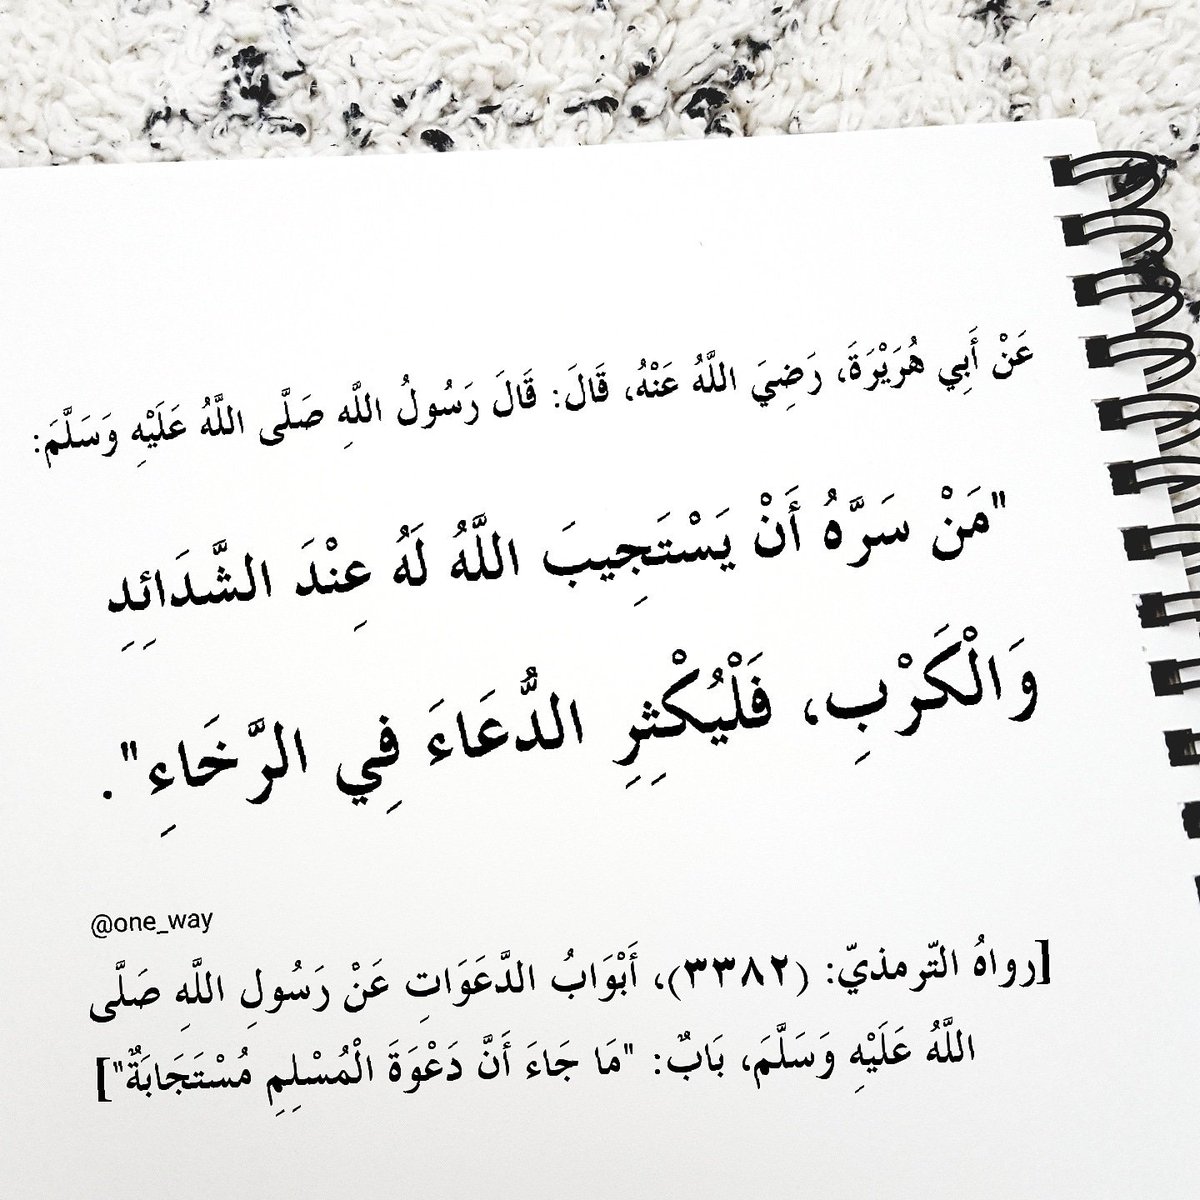 عَنْ أَبِي هُرَيْرَةَ، رَضِيَ اللَّهُ عَنْهُ، قَالَ: قَالَ رَسُولُ اللَّهِ صَلَّى اللَّهُ عَلَيْهِ وَسَلَّمَ:
"مَنْ سَرَّهُ أَنْ يَسْتَجِيبَ اللَّهُ لَهُ عِنْدَ الشَّدَائِدِ
وَالْكَرْبِ، فَلْيُكْثِرِ الدُّعَاءَ فِي الرَّخَاءِ".
@one_way
[رواهُ التّرمذيّ: (٣٣٨٢)، أَبْوَابُ الدَّعَوَاتِ عَنْ رَسُولِ اللَّهِ صَلَّى
اللَّهُ عَلَيْهِ وَسَلَّمَ، بَابٌ: "مَا جَاءَ أَنَّ دَعْوَةَ الْمُسْلِمِ مُسْتَجَابَةٌ"]